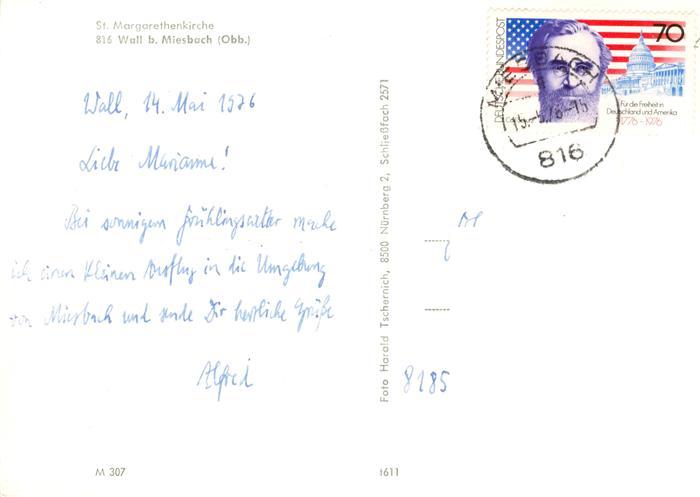 St. Margarethenkirche
816 Wall b. Miesbach (Obb.)
Wall, 14. Mai 1976
Liebe Marianne!
Bei sonnigem Frühlingswetter mache
ich einen kleinen Ausflug in die Umgebung
von Miesbach und sende Dir herzliche Grüße
Alfred
M 307
Foto Harald Tschernich, 8500 Nürnberg 2, Schließfach 2571
t611
8185
DEUTSCHE BUNDESPOST
70
Für die Freiheit in
Deutschland und Amerika
1776-1976
MIESBACH
15.-5.76-15
816